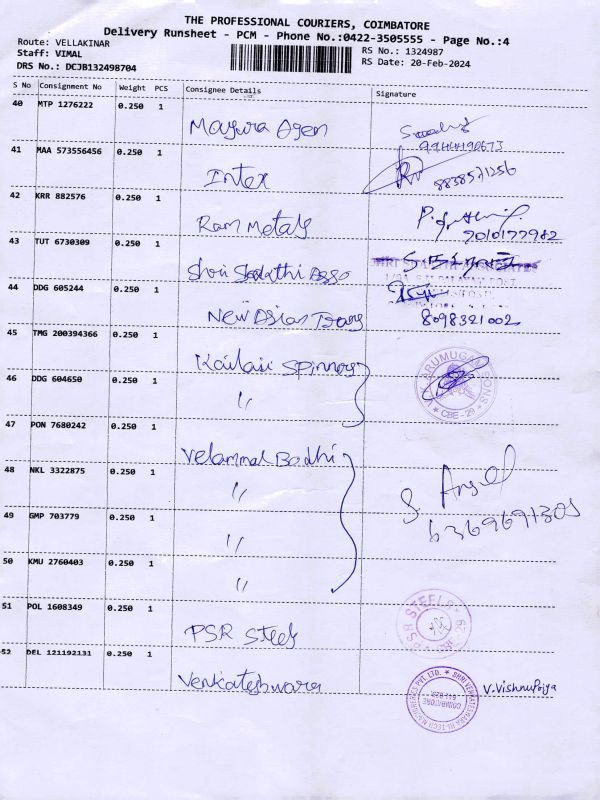 THE PROFESSIONAL COURIERS, COIMBATORE
Delivery Runsheet - PCM - Phone No.:0422-3505555 - Page No.:4
Route: VELLAKINAR
RS No.: 1324987
Staff: VIMAL
RS Date: 20-Feb-2024
DRS No.: DCJB132498704
S No Consignment No Weight PCS Consignee Details Signature
40 MTP 1276222 0.250 1
Mayura Agen
41 MAA 573556456 0.250 1
Intex 8838571256
42 KRR 882576 0.250 1
Ram Metals 7010177982
43 TUT 6730309 0.250 1
Shri Sadathi Asso
44 DDG 605244 0.250 1
New Asian Trans 8098321002
45 TMG 200394366 0.250 1
Kailaii Spinners
V.K. ARUMUGAM SONS
* CBE-29 *
46 DDG 604650 0.250 1
"
47 PON 7680242 0.250 1
Velammal Bodhi
48 NKL 3322875 0.250 1
"
S. Angel
6369671305
49 GMP 703779 0.250 1
"
50 KMU 2760403 0.250 1
"
51 POL 1608349 0.250 1
PSR Steels
PSR STEELS
52 DEL 121192131 0.250 1
Venkateshwara V. Vishnupriya
SHRI VENKATESWARA HI-TECH MACHINERIES PVT. LTD. *
COIMBATORE